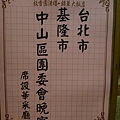 台北市
基隆市
中山區團委會晚宴
席設華采廳